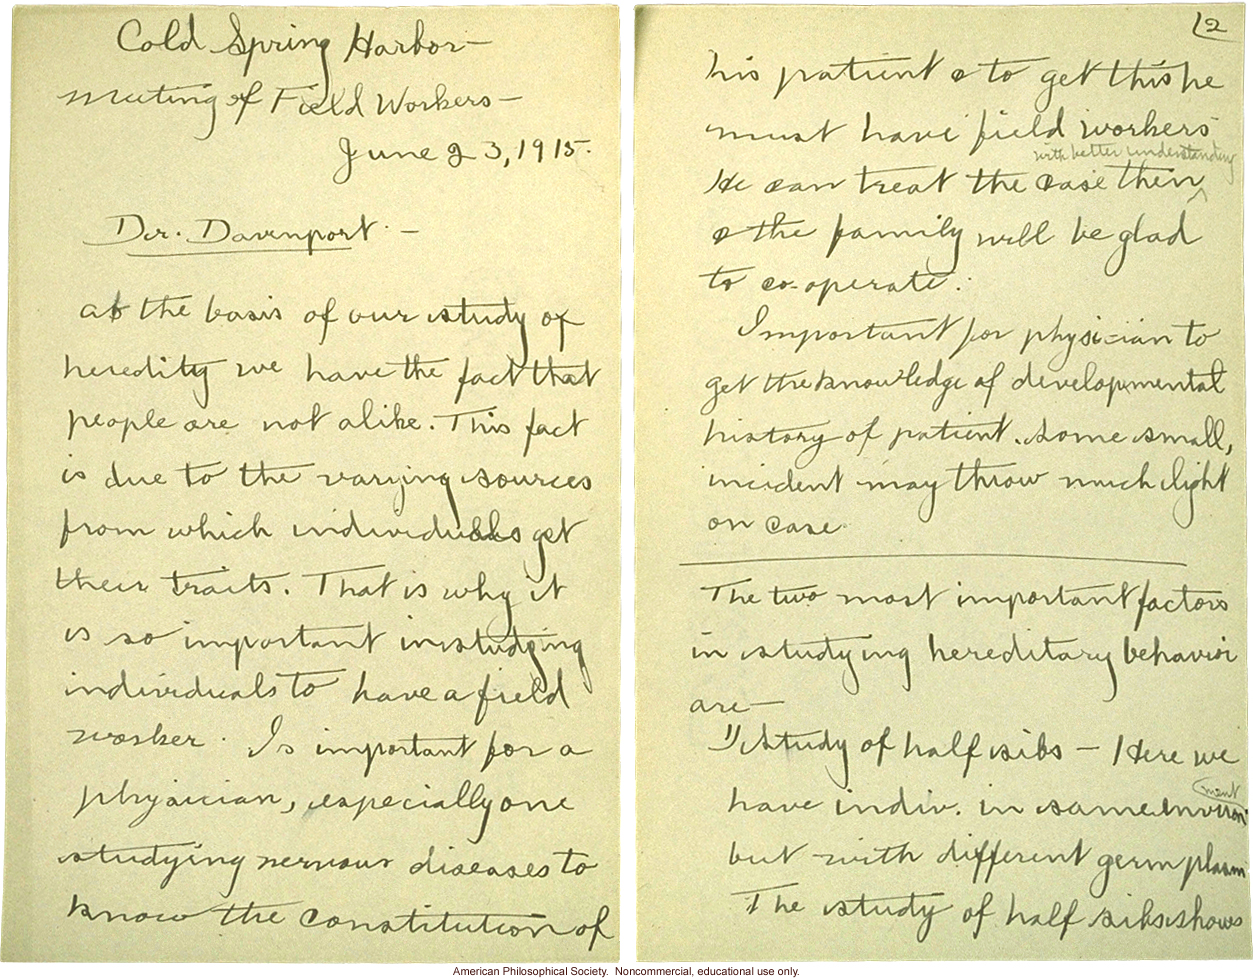 Cold Spring Harbor—
Meeting of Field Workers—
June 23, 1915.
Dr. Davenport. —
at the basis of our study of
heredity we have the fact that
people are not alike. This fact
is due to the varying sources
from which individuals get
their traits. That is why it
is so important in studying
individuals to have a field
worker. Is important for a
physician, especially one
studying nervous diseases to
know the constitution of
2
his patient & to get this he
must have field workers
with better understanding
He can treat the case then ^
& the family will be glad
to co-operate.
Important for physician to
get the knowledge of developmental
history of patient. Some small,
incident may throw much light
on case
The two most important factors
in studying hereditary behavior
are—
1) Study of half sibs — Here we
ment
have indiv. in same environ
but with different germ plasm
The study of half sibs shows
American Philosophical Society. Noncommercial, educational use only.